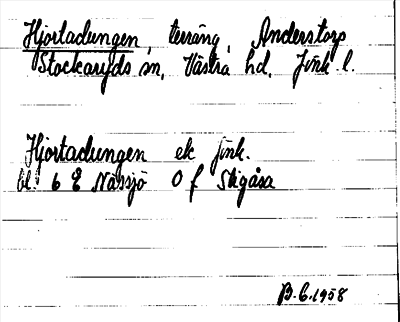 Hjortadungen, terräng, Anderstorp
Stockaryds sn, Västra hd, Jönk l.
Hjortadungen ek jönk.
bl. 6 E Nässjö 0 f Stigåsa
B.C. 1958